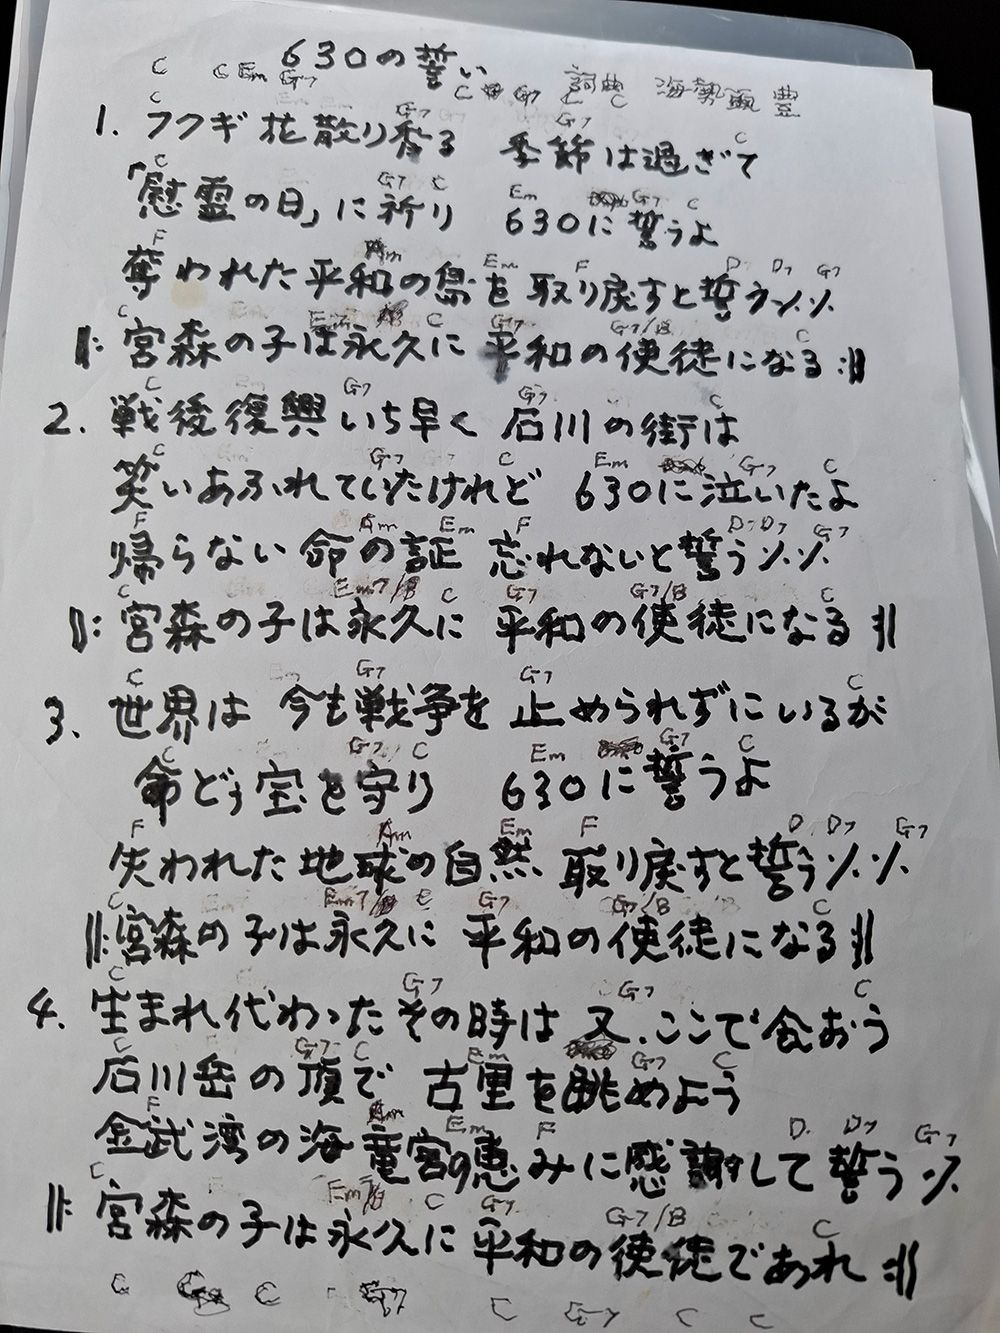 630の誓い
C C Em G7 C G7 C C 詞曲 海勢頭 豊
C G7 G7 C
1. フクギ花散り香る 季節は過ぎて
C G7 C Em G7 C
「慰霊の日」に祈り 630に誓うよ
F Am Em F D D7 G7
奪われた平和の島を 取り戻すと誓う〃〃
C Em7 C G7 G7/B C
‖: 宮森の子は永久に 平和の使徒になる :‖
C G7 G7 C
2. 戦後復興いち早く 石川の街は
C G7 C Em G7 C
笑いあふれていたけれど 630に泣いたよ
F Am Em F D D7 G7
帰らない命の証 忘れないと誓う〃〃
C Em7/B C G7 G7/B C
‖: 宮森の子は永久に 平和の使徒になる :‖
C G7 G7 C
3. 世界は 今も戦争を 止められずにいるが
C G7 C Em G7 C
命どぅ宝を守り 630に誓うよ
F Am Em F D D7 G7
失われた地球の自然 取り戻すと誓う〃〃
C Em7/B C G7 G7/B C
‖: 宮森の子は永久に 平和の使徒になる :‖
C G7 G7 C
4. 生まれ代わったその時は 又、ここで会おう
C G7 C Em G7 C
石川岳の頂で 古里を眺めよう
F Am Em F D D7 G7
金武湾の海 竜宮の恵みに感謝して 誓う〃
C Em7/B C G7 G7/B C
‖: 宮森の子は永久に 平和の使徒であれ :‖
C C G7 C G7 C C